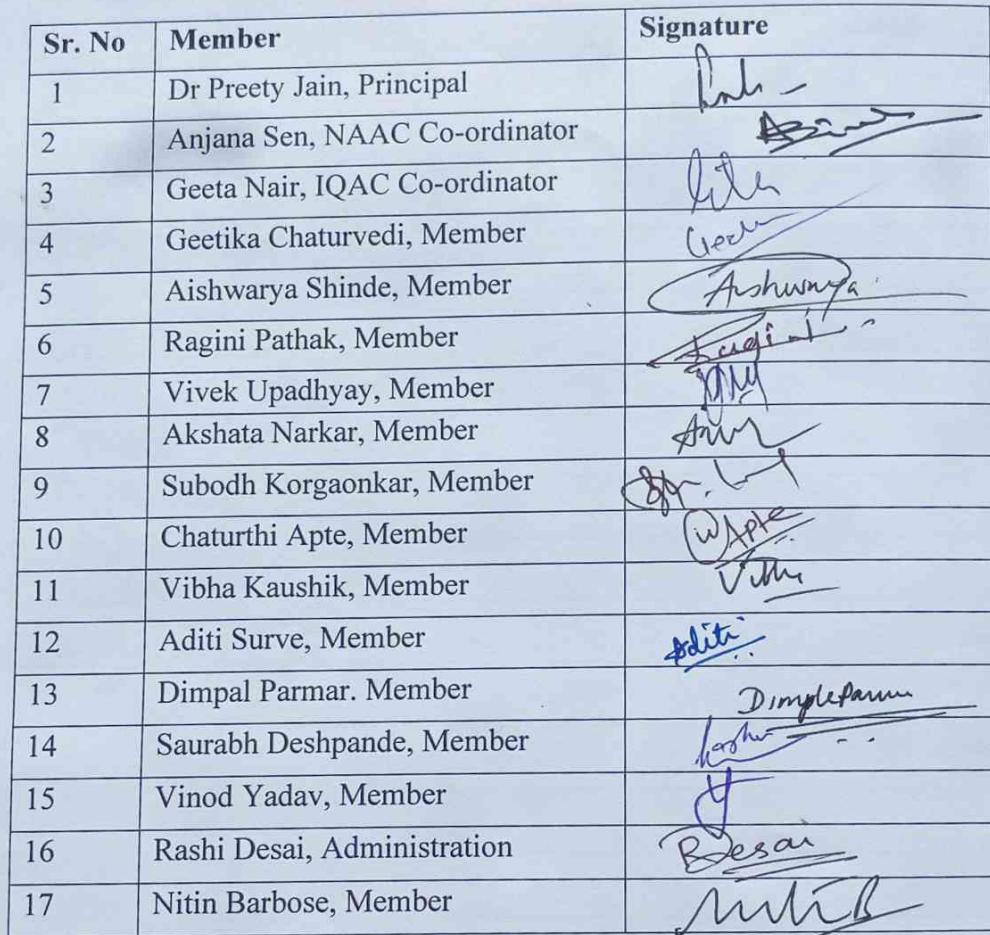 Sr. No Member Signature
1 Dr Preety Jain, Principal
2 Anjana Sen, NAAC Co-ordinator
3 Geeta Nair, IQAC Co-ordinator
4 Geetika Chaturvedi, Member
5 Aishwarya Shinde, Member Aishwarya
6 Ragini Pathak, Member Ragini
7 Vivek Upadhyay, Member
8 Akshata Narkar, Member
9 Subodh Korgaonkar, Member
10 Chaturthi Apte, Member Apte
11 Vibha Kaushik, Member
12 Aditi Surve, Member Aditi
13 Dimpal Parmar. Member Dimple Parmar
14 Saurabh Deshpande, Member
15 Vinod Yadav, Member
16 Rashi Desai, Administration RDesai
17 Nitin Barbose, Member